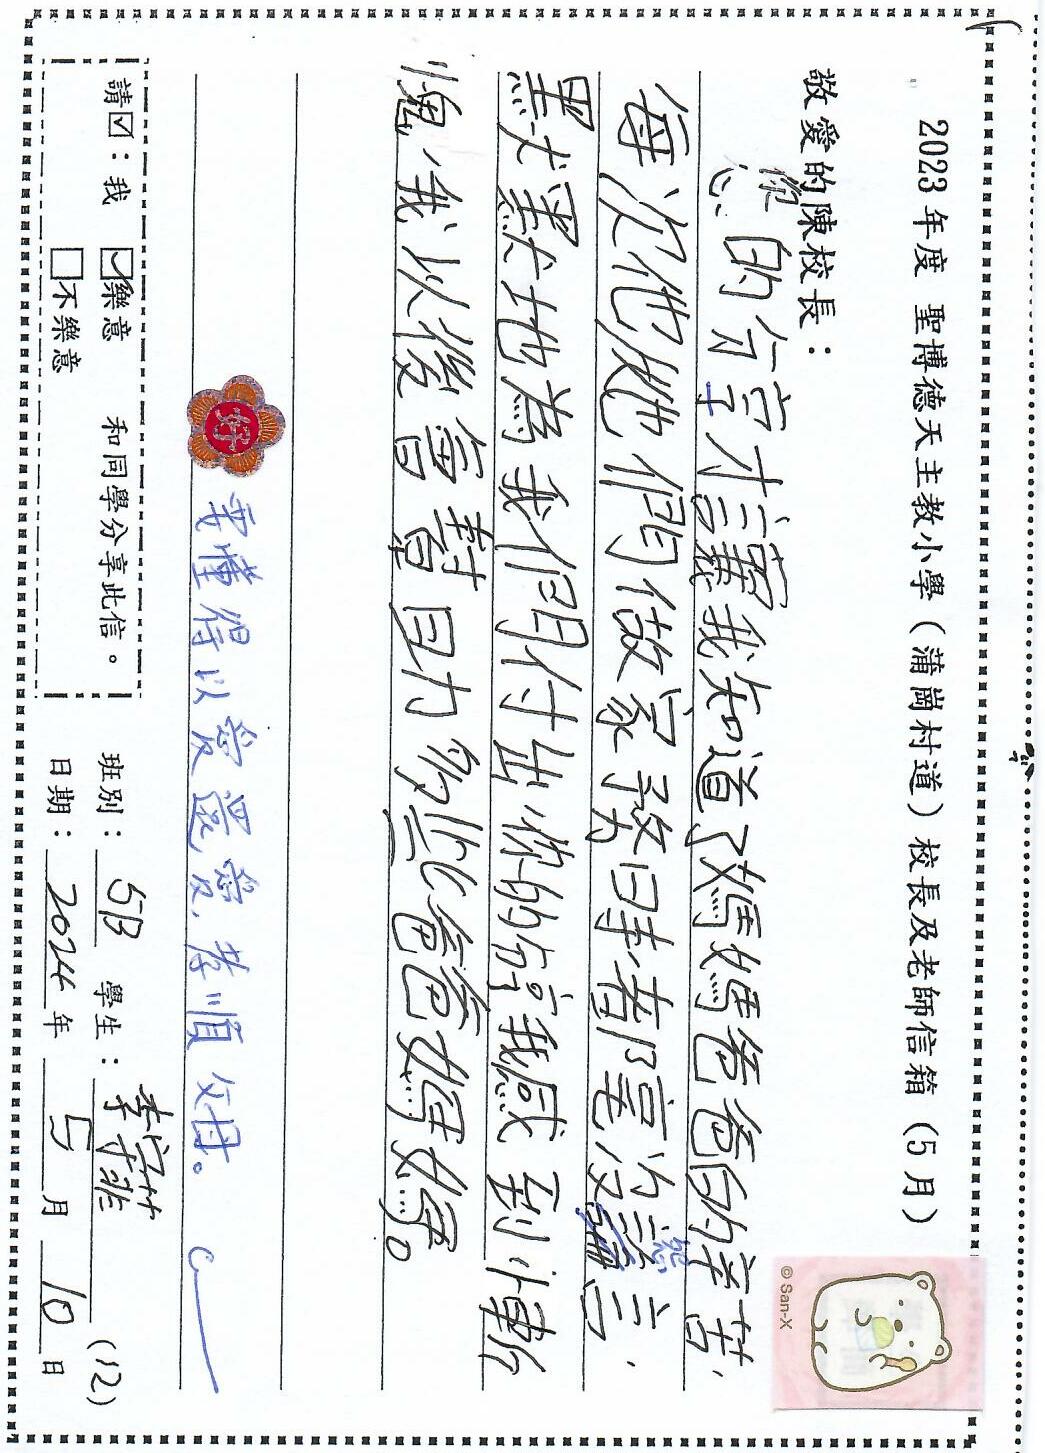 2023年度 聖博德天主教小學（蒲崗村道）校長及老師信箱（5月）
敬愛的陳校長：
您的分享才讓我知道了媽媽爸爸的辛苦，
每次他她們做家務時都毫沒怨言，
默默地為我們付出你的分享我感到慚
愧，我以後會幫助多些爸爸媽媽。
要懂得以愛還愛，孝順父母。
好
請☑：我 ☑樂意 和同學分享此信。
□不樂意
班別：5B 學生：李宗菲 (12)
日期：2024年5月10日
© San-X